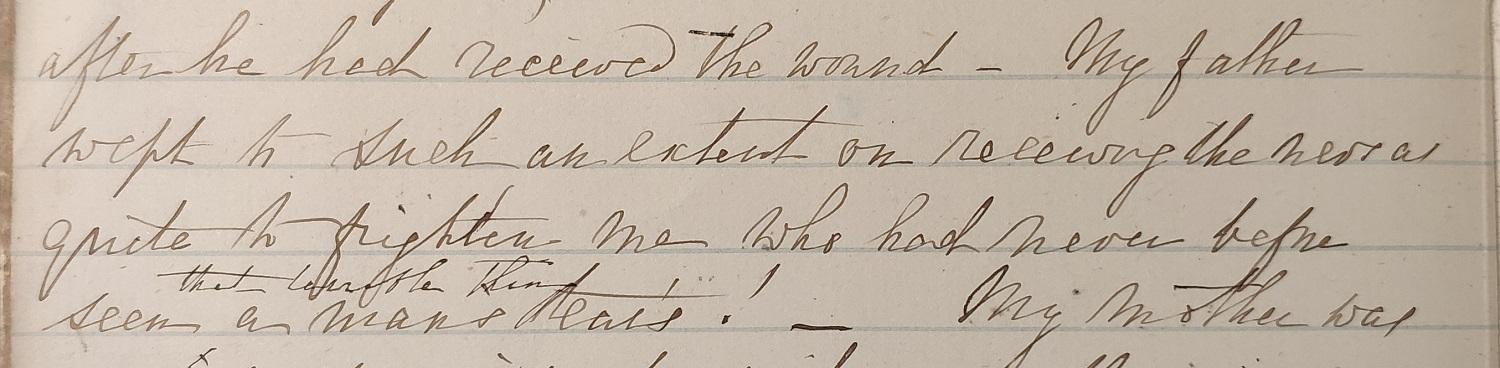 after he had received the wound - My father
wept to such an extent on receiving the news as
quite to frighten me who had never before
that terrible thing
seen a mans tears! - My mother was